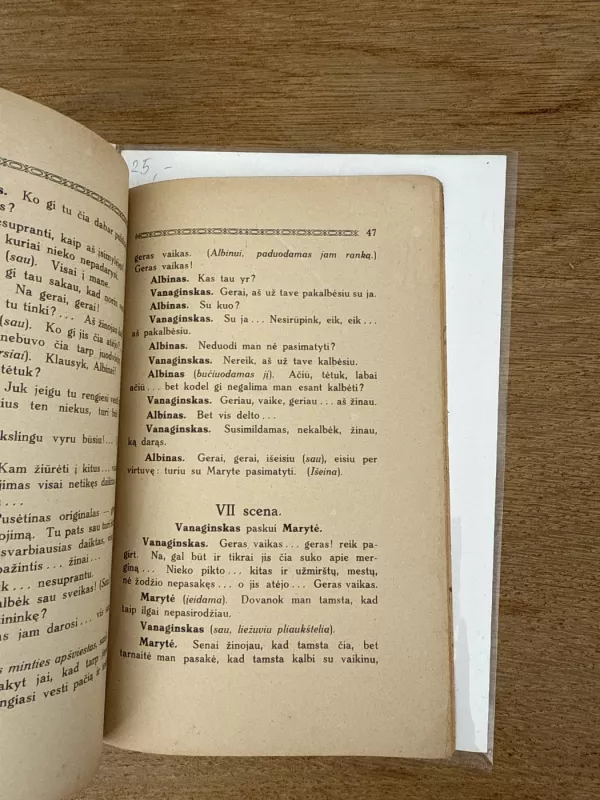 s. Ko gi tu čia dabar
s?
esupranti, kaip aš įsimylėjęs
kuriai nieko nepadarysi,
(sau). Visai į mane.
gi tau sakau, kad noriu
Na gerai, gerai!
tu tinki?... Aš žinojau
(sau). Ko gi jis čia atėjo?
nebuvo čia tarp
rsiai). Klausyk, Albinai!
tėtuk?
Juk jeigu tu rengiesi vesti
ius ten niekus, turi
kslingu vyru būsiu!...
Kam žiūrėti į kitus...
jimas visai netikęs
...
Pusėtinas originalas —
ojimą. Tu pats sau
svarbiausias daiktas,
pažintis... žinai...
k... nesuprantu.
albėk sau sveikas! (Sau).
ininkę?
as jam darosi...
s minties apšviestas,
akyt jai, kad tarp
ngiasi vesti pačią ir
25,-
47
geras vaikas. (Albinui, paduodamas jam ranką.)
Geras vaikas!
Albinas. Kas tau yr?
Vanaginskas. Gerai, aš už tave pakalbėsiu su ja.
Albinas. Su kuo?
Vanaginskas. Su ja... Nesirūpink, eik, eik...
aš pakalbėsiu.
Albinas. Neduodi man nė pasimatyti?
Vanaginskas. Nereik, aš už tave kalbėsiu.
Albinas (bučiuodamas jį). Ačiū, tėtuk, labai
ačiū... bet kodel gi negalima man esant kalbėti?
Vanaginskas. Geriau, vaike, geriau... aš žinau.
Albinas. Bet vis delto...
Vanaginskas. Susimildamas, nekalbėk, žinau,
ką darąs.
Albinas. Gerai, gerai, išeisiu (sau), eisiu per
virtuvę: turiu su Maryte pasimatyti. (Išeina).
VII scena.
Vanaginskas paskui Marytė.
Vanaginskas. Geras vaikas... geras! reik pa-
girt. Na, gal būt ir tikrai jis čia suko apie mer-
giną... Nieko pikto... kitas ir užmirštų, mestų,
nė žodžio nepasakęs... o jis atėjo... Geras vaikas.
Marytė (įeidama). Dovanok man tamsta, kad
taip ilgai nepasirodžiau.
Vanaginskas (sau, liežuviu pliaukštelia).
Marytė. Senai žinojau, kad tamsta čia, bet
tarnaitė man pasakė, kad tamsta kalbi su vaikinu,